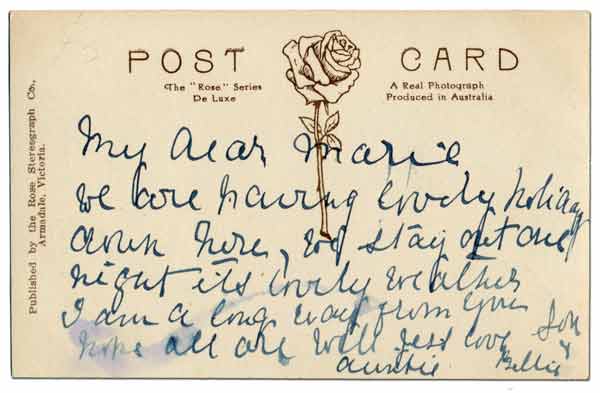 POST CARD
The "Rose" Series
De Luxe
A Real Photograph
Produced in Australia
Published by the Rose Stereograph Co.,
Armadale, Victoria.
My dear Marie
we are having lovely holiday
down here, we stay out one
night its lovely weather
I am a long way from you
hope all are well best love
auntie